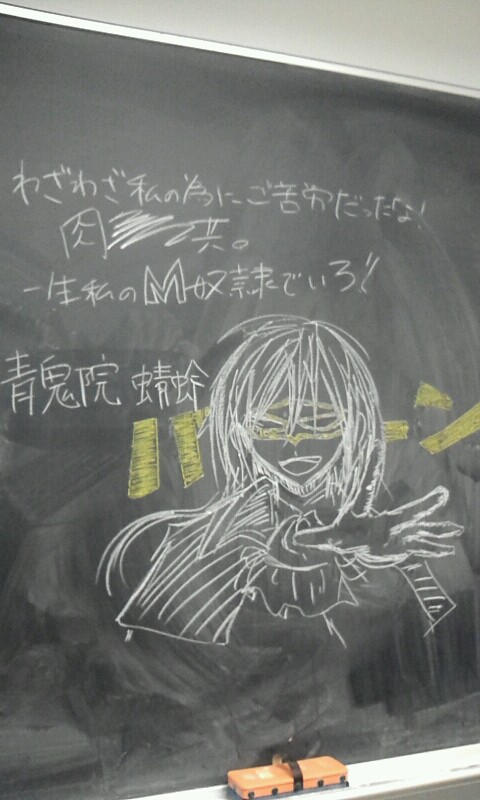 わざわざ私の為にご苦労だったな!
肉 共。
一生私のM奴隷でいろ!!
青鬼院 蜻蛉
バーン